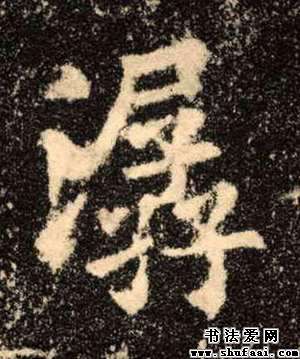 潺
书法爱网
www.shufaai.com